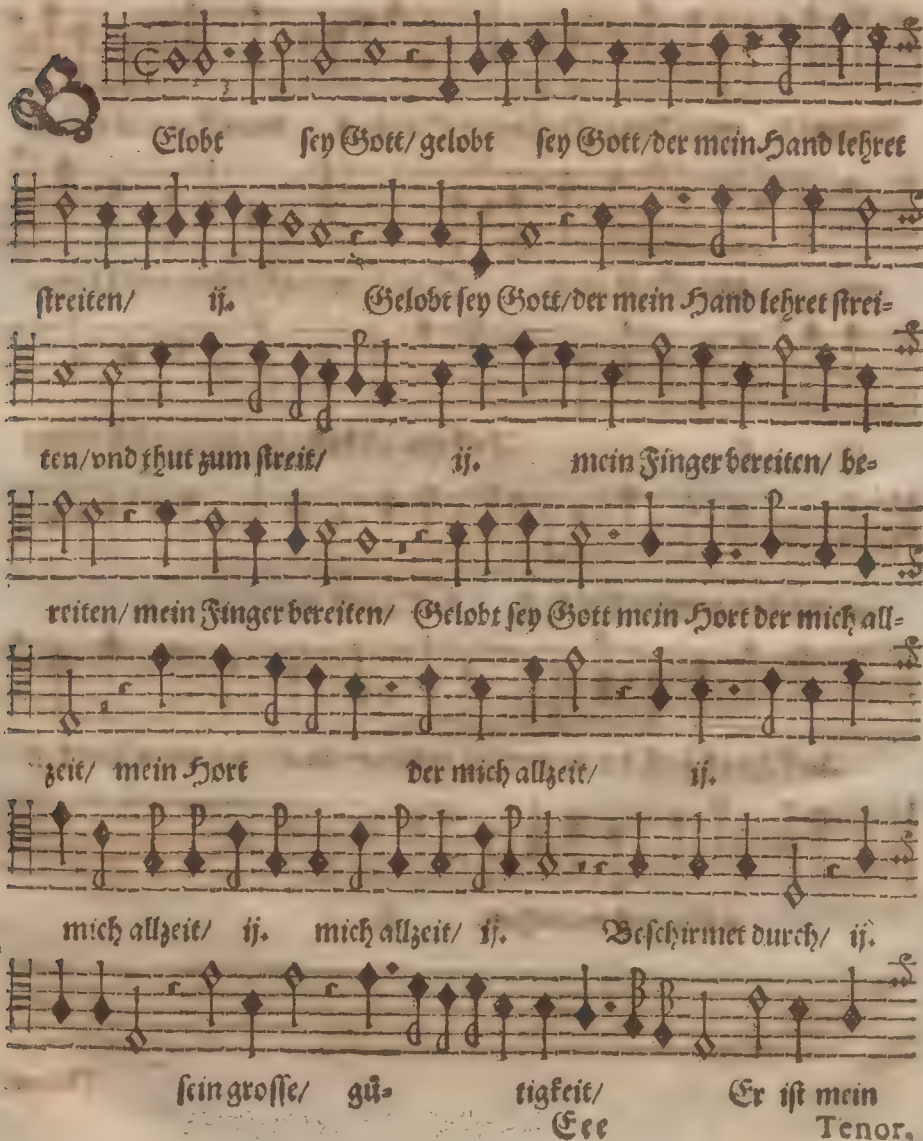 GElobt sey Gott/ gelobt sey Gott/ der mein Hand lehret
streiten/ ij. Gelobt sey Gott/ der mein Hand lehret strei=
ten/ vnd thut zum streit/ ij. mein Finger bereiten/ be=
reiten/ mein Finger bereiten/ Gelobt sey Gott mein Hort der mich all=
zeit/ mein Hort der mich allzeit/ ij.
mich allzeit/ ij. mich allzeit/ ij. Beschirmet durch/ ij.
sein grosse/ gü= tigkeit/ Er ist mein
Eee Tenor.